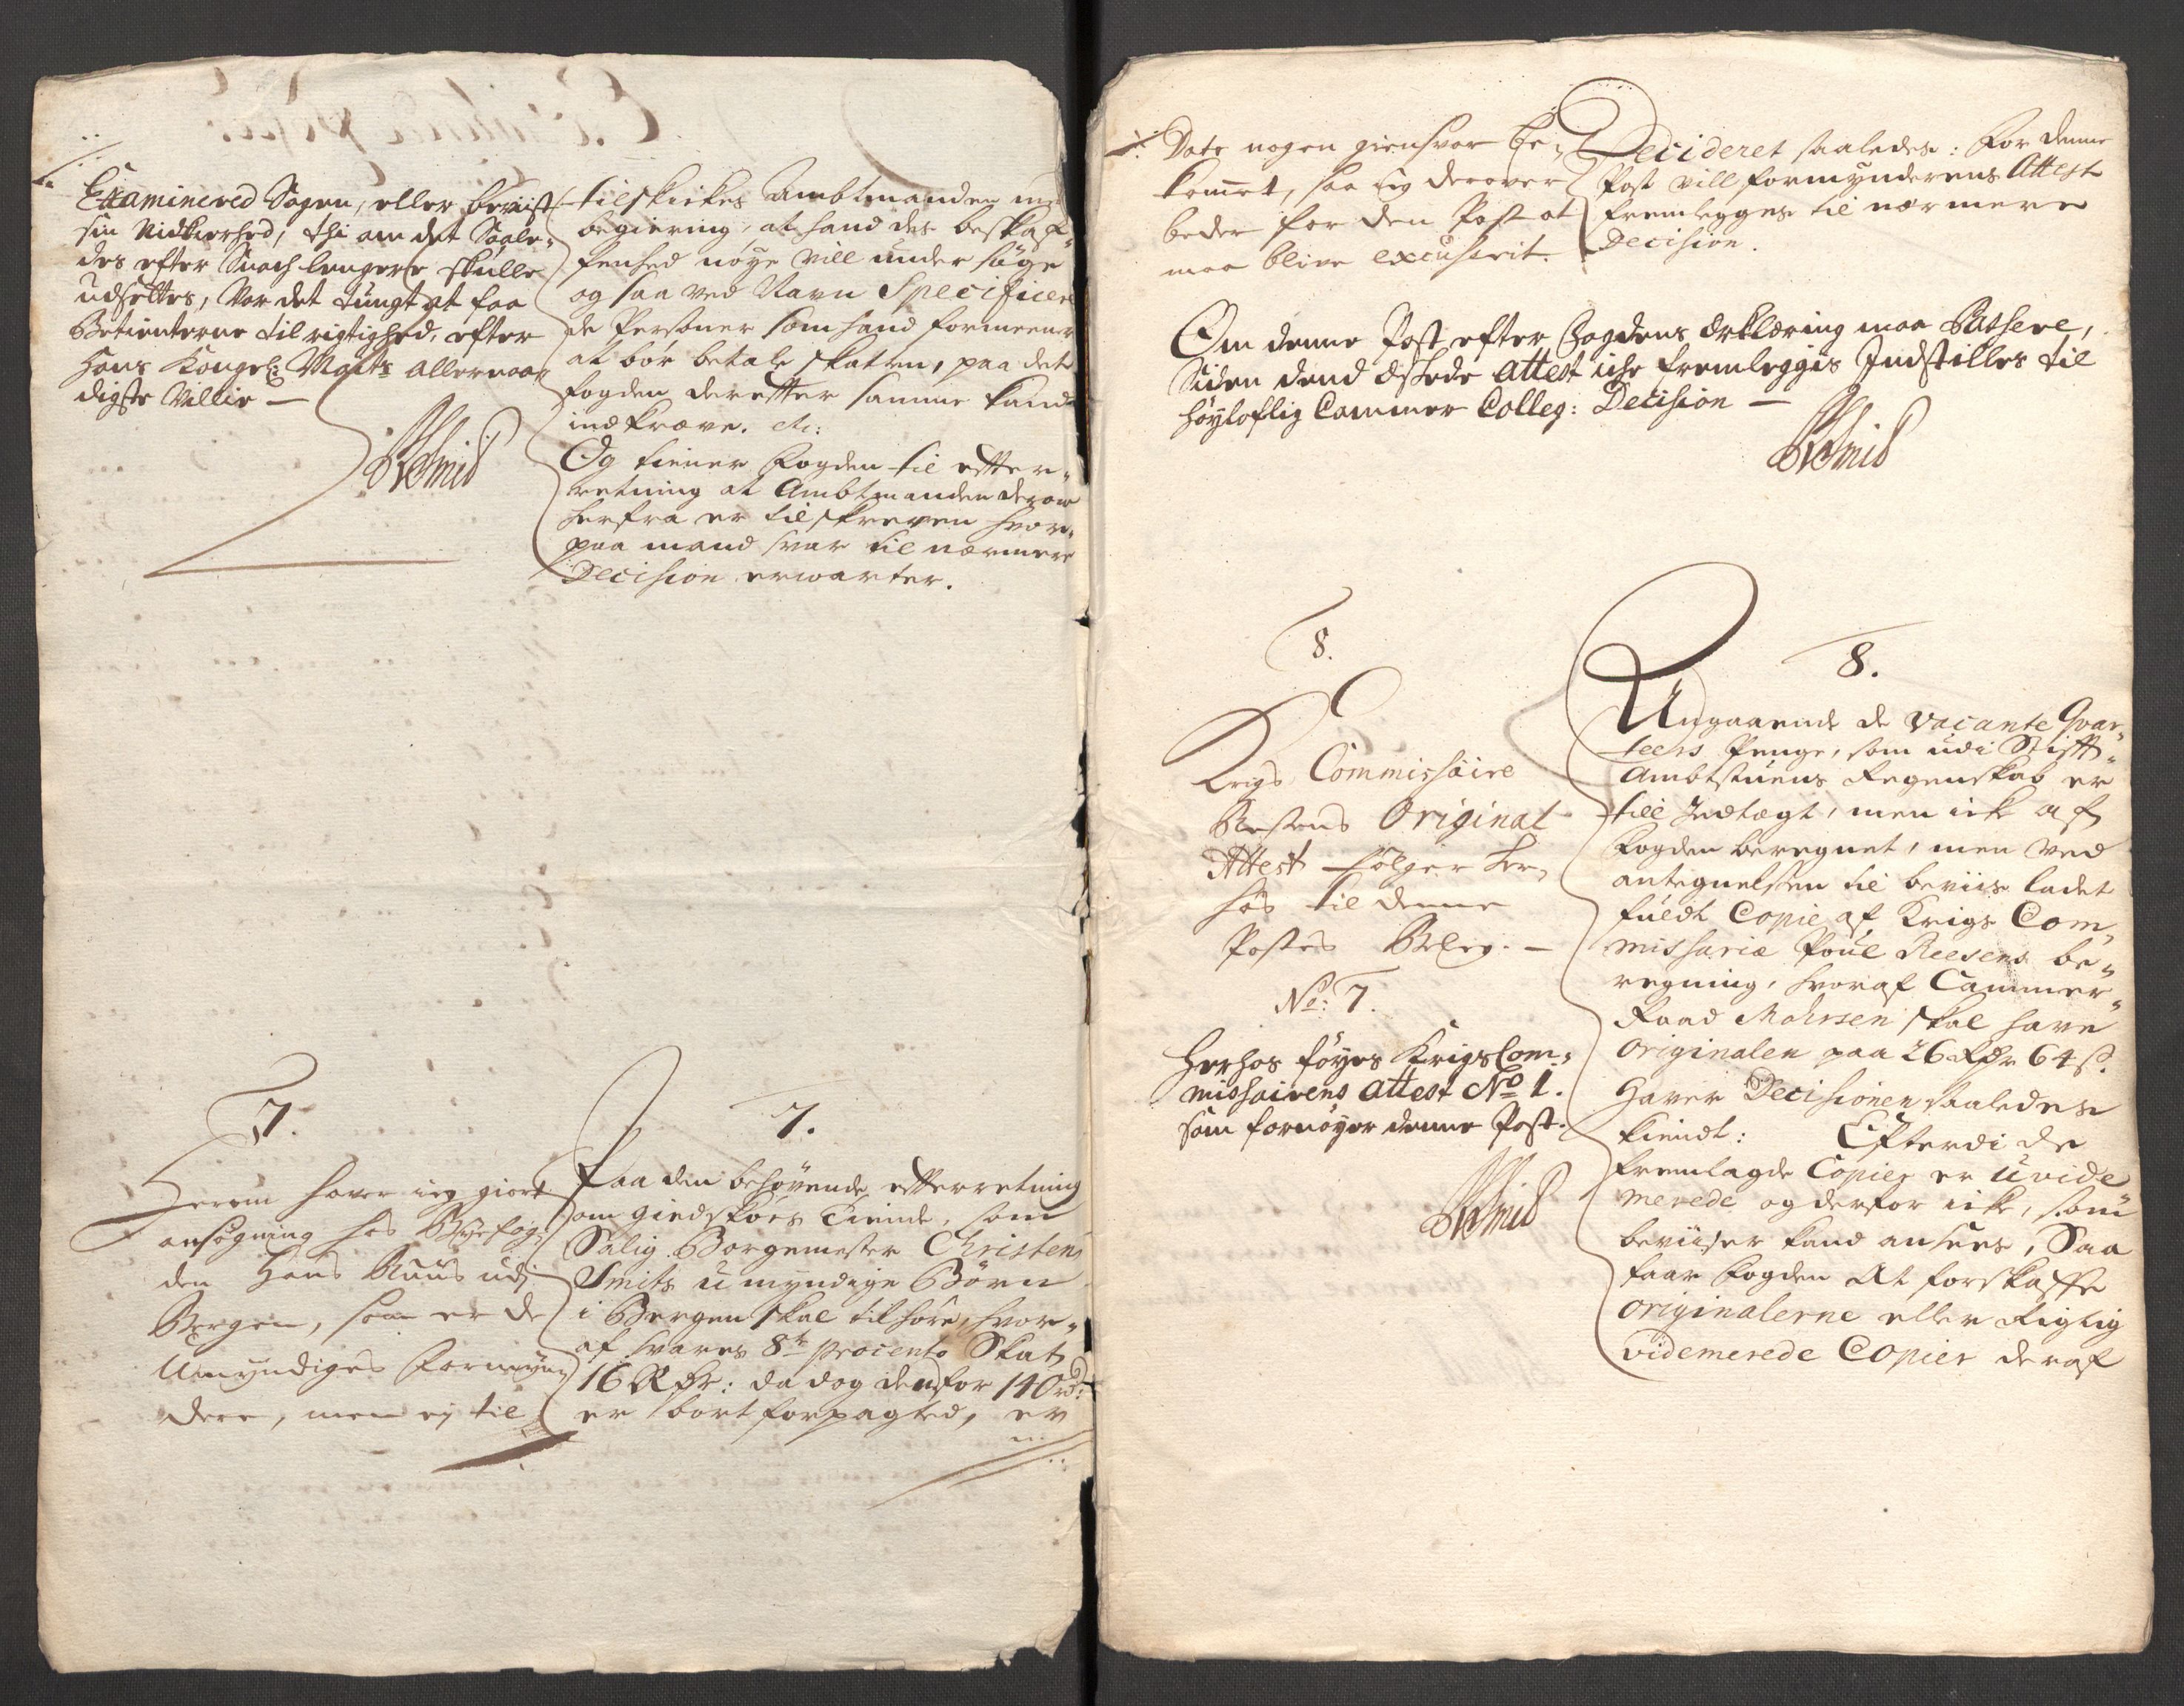 Examinered Sagen, eller beviist
sin Nidkierhed, thi om det Saale-
des efter Snach lengere skulle
udsettes, Var det tungt at faa
Betienterne til rigtighed, efter
Hans Kongel: Mayts allernaa-
digste Villie —
tilskickes Ambtmanden med
begiering, at hand des beskaf-
fenhed nøye vill under søge
og saa ved Navn Specificere
de Personer som hand formeener
at bør betale skatten, paa det
fogden derefter samme kand
indkræve. etc:
Og tiener Fogden til efter-
retning at Ambtmanden derom
herfra er tilskreven hvor-
paa mand svar til nærmere
Decision erwarter.
7.
Herom haver ieg giort
ansøgning hos Byefog-
den Hans Ruus udj
Bergen, som er de
Umyndiges Formyn-
dere, men ej til
7.
Faa den behøvende efterretning
om giedskoes Tiende, som
Salig Borgemester Christen
Smits umyndige Børn
i Bergen skal tilhøre, hvor-
af svares 8te procento Skat
16 Rdr: da dog den for 140 rd:
er bortforpagted, er
Dato nogen giensvar be-
kommet, saa jeg derover
beder for den Post at
maa blive excuserit.
Decideret saaledes: For denne
Post vill formynderens Attest
fremlegges til nærmere
Decision.
Om denne Post efter Fogdens Erklæring maa Passere,
Siden dend æskede attest iche fremleggis Indstilles til
høyloflig Cammer Colleg: Decision —
8.
Krigs Commissaire
Resens Original
Attest følger her-
hos til denne
Postes Beleg. —
No: 7.
Herhos føyes KrigsCom-
missairens attest No 1.
som fornøyer denne Post.
8.
Angaaende de vacante Qvar-
teers Penge, som udi Stifft-
Ambtstuens Regenskab er
till Indtægt, men ick af
Fogden beregnet, men ved
antegnelsen til beviis ladet
fuldt Copie af Krigs Com-
missariæ Poul Reesens be-
regning, hvoraf Cammer-
Raad Mohrsen skal have
originalen paa 26 Rdr 64 s.
Haver Decisionen saaledes
kiendt: Efterdi de
fremlagde Copier er uvide
merede og derfor ick, som
beviiser kand ansees, Saa
faar Fogden At forskaffe
originalerne eller Rigtig
videmerede Copier deraf